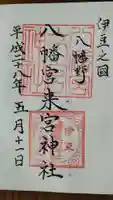 伊豆之國
八幡野
八幡宮来宮神社
平成二十八年五月十一日